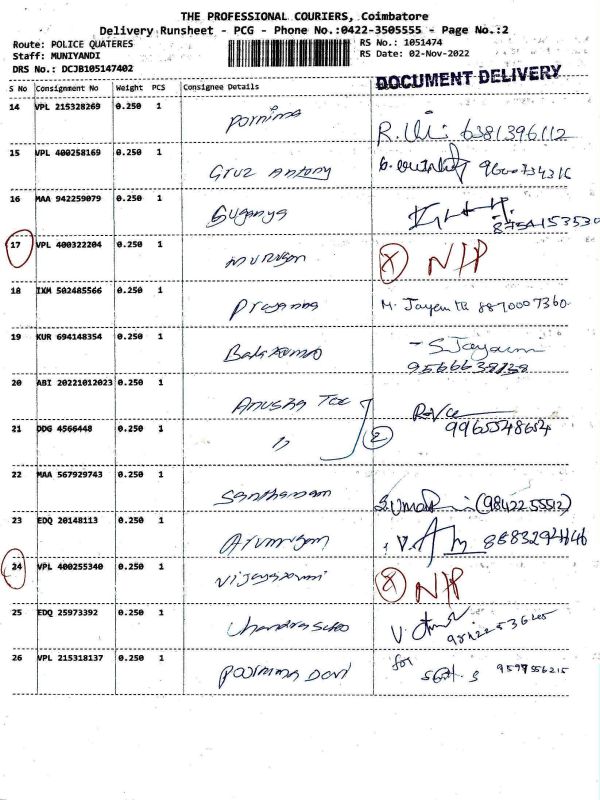 THE PROFESSIONAL COURIERS, Coimbatore
Delivery Runsheet - PCG - Phone No.:0422-3505555 - Page No.:2
Route: POLICE QUATERES
RS No.: 1051474
Staff: MUNIYANDI
RS Date: 02-Nov-2022
DRS No.: DCJB105147402
DOCUMENT DELIVERY
S No Consignment No Weight PCS Consignee Details
14 VPL 215328269 0.250 1 Pornima
6381396112
15 VPL 400258169 0.250 1 Gruz Antony
9600734316
16 MAA 942259079 0.250 1 Suganya
17 VPL 400322204 0.250 1 murugan
X N/P
18 IXM 502485566 0.250 1
M. Jayen 8870007360
19 KUR 694148354 0.250 1
S. Jayarani
20 ABI 20221012023 0.250 1 Anusha Tec
21 DDG 4566448 0.250 1 "
2
9965548654
22 MAA 567929743 0.250 1 Santhanam
(9842255512)
23 EDQ 20148113 0.250 1 Arumugam
V.
24 VPL 400255340 0.250 1
X N/P
25 EDQ 25973392 0.250 1
V.
26 VPL 215318137 0.250 1 Poornima Devi
for
9597556215